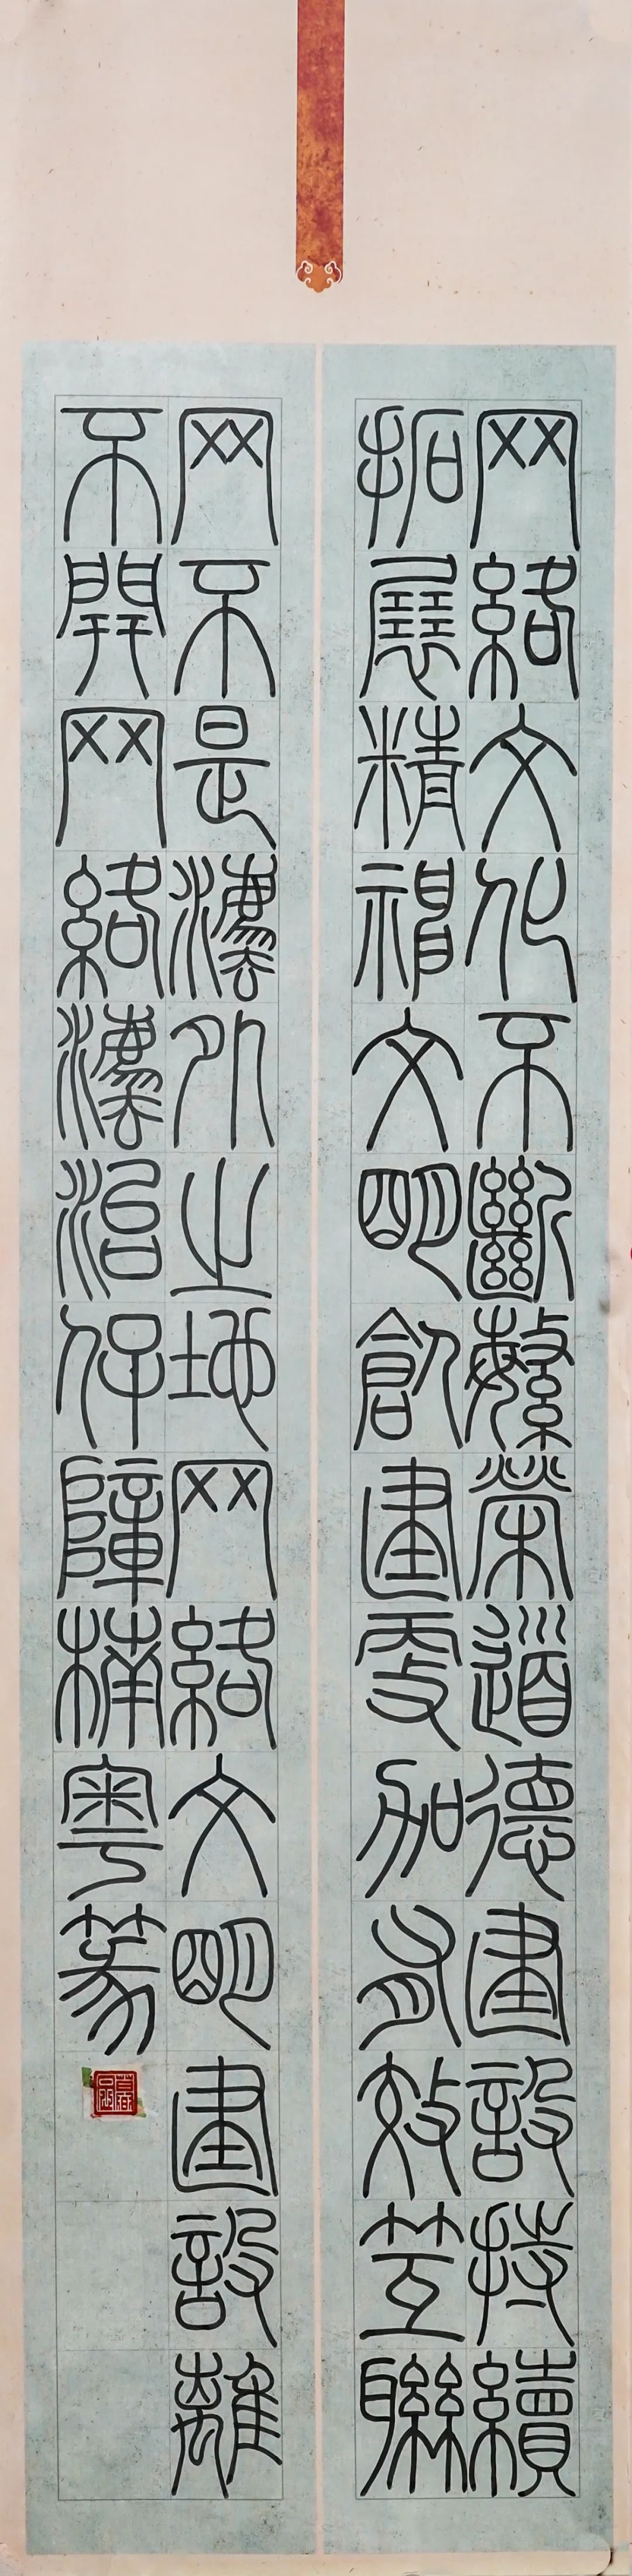 网絡文化不斷繁榮道德建設持續
拓展精神文明創建更加有效互聯
网不是灋外之地网絡文明建設離
不開网絡灋治保障楠粵篆